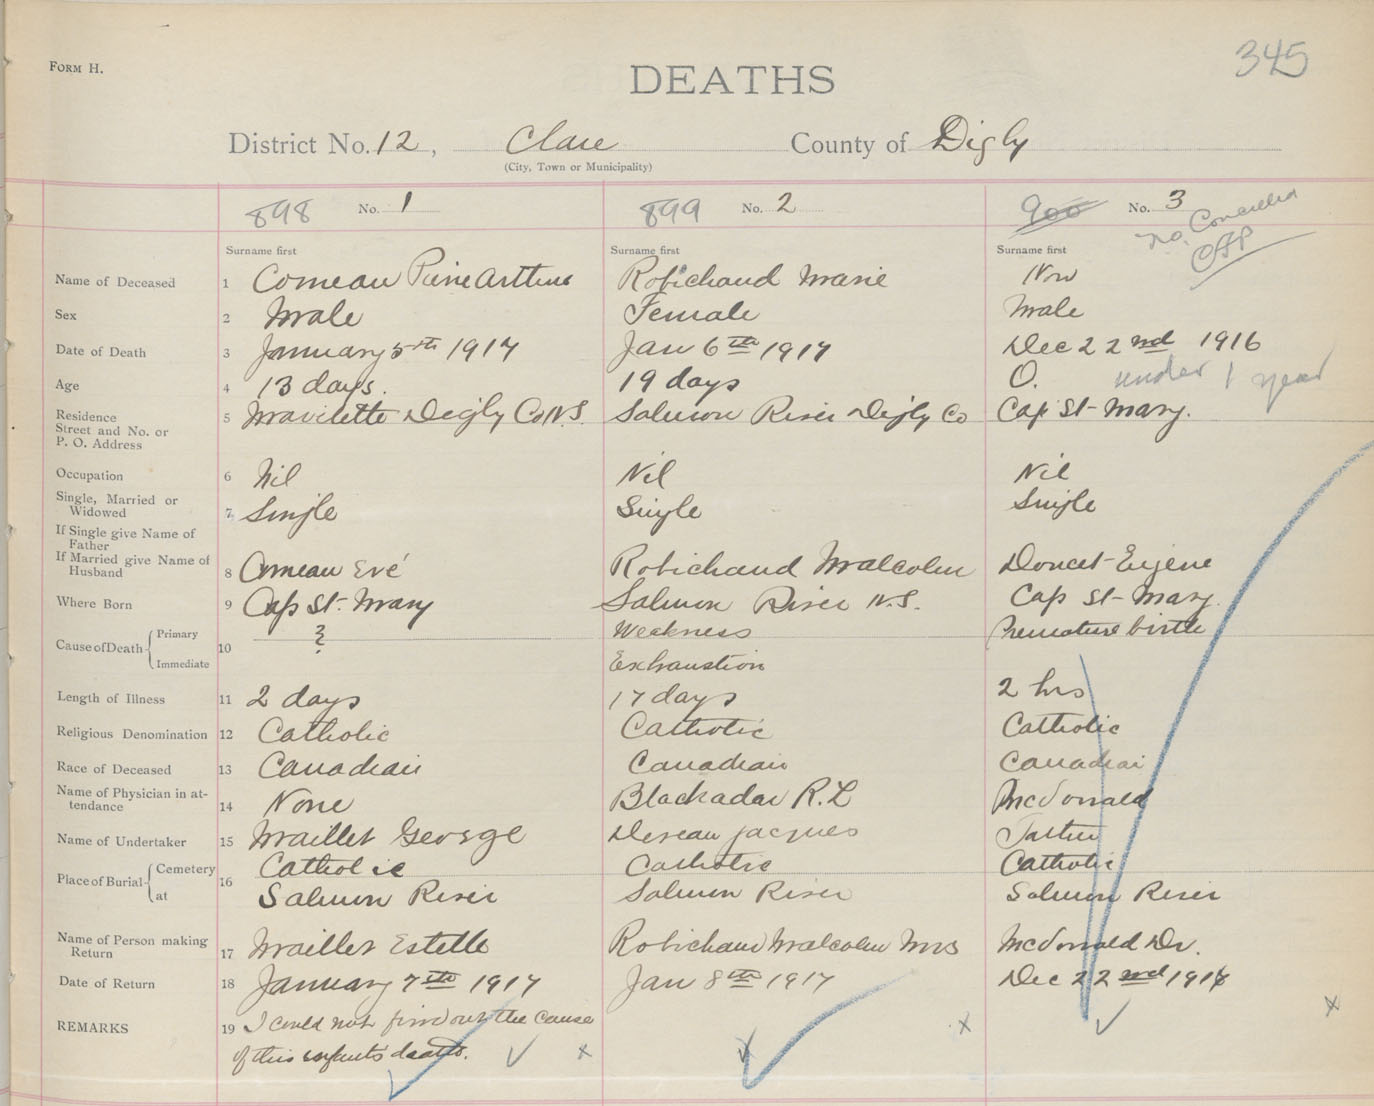 345
FORM H.
DEATHS
District No. 12, Clare County of Digby
(City, Town or Municipality)
898 No. 1 899 No. 2 900 No. 3
no. Cancelled
Surname first Surname first Surname first
Name of Deceased 1 Comeau Pierre Arthur Robichaud Marie Non
Sex 2 Male Female Male
Date of Death 3 January 5th 1917 Jan 6th 1917 Dec 22nd 1916
Age 4 13 days. 19 days O. under 1 year
Residence Street and No. or P. O. Address 5 Mavilette Digby Co N.S. Salmon River Digby Co Cap St-Mary.
Occupation 6 Nil Nil Nil
Single, Married or Widowed 7 Single Single Single
If Single give Name of Father
If Married give Name of Husband 8 Comeau Evé Robichaud Malcolm Doucet Eugene
Where Born 9 Cap St. Mary Salmon River N.S. Cap St-Mary.
Cause of Death Primary 10 ? Weakness Premature birth
Immediate Exhaustion
Length of Illness 11 2 days 17 days 2 hrs
Religious Denomination 12 Catholic Catholic Catholic
Race of Deceased 13 Canadian Canadian Canadian
Name of Physician in attendance 14 None Blackadar R.L McDonald
Name of Undertaker 15 Maillet George Deveau Jacques Father
Place of Burial Cemetery 16 Catholic Catholic Catholic
at Salmon River Salmon River Salmon River
Name of Person making Return 17 Maillet Estelle Robichaud Malcolm Mrs McDonald Dr.
Date of Return 18 January 7th 1917 Jan 8th 1917 Dec 22nd 1916
REMARKS 19 I could not find out the cause
of this infants death. x x x